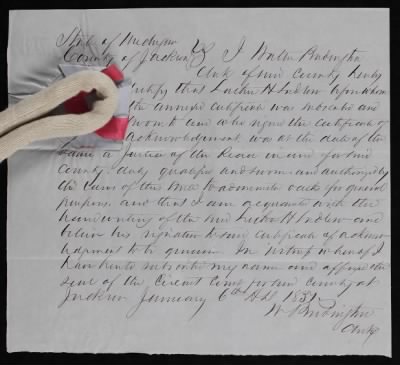 State of Michigan
County of Jackson } I Walter Budington
Clerk of said County hereby
certify that Luther H Ludlow before whom
the annexed certificate was subscribed and
sworn to and who signed the certificate of
acknowledgment, was at the date of the
same a Justice of the Peace in and for said
County duly qualified and sworn and authorized by
the Laws of the State to administer oaths for general
purposes and that I am acquainted with the
handwriting of the said Luther H Ludlow and
believe his signature to said certificate of acknow
ledgment to be genuine In witness whereof I
have hereto subscribed my name and affixed the
seal of the Circuit Court for said County at
Jackson January 6th A.D. 1851
W Budington
Clerk